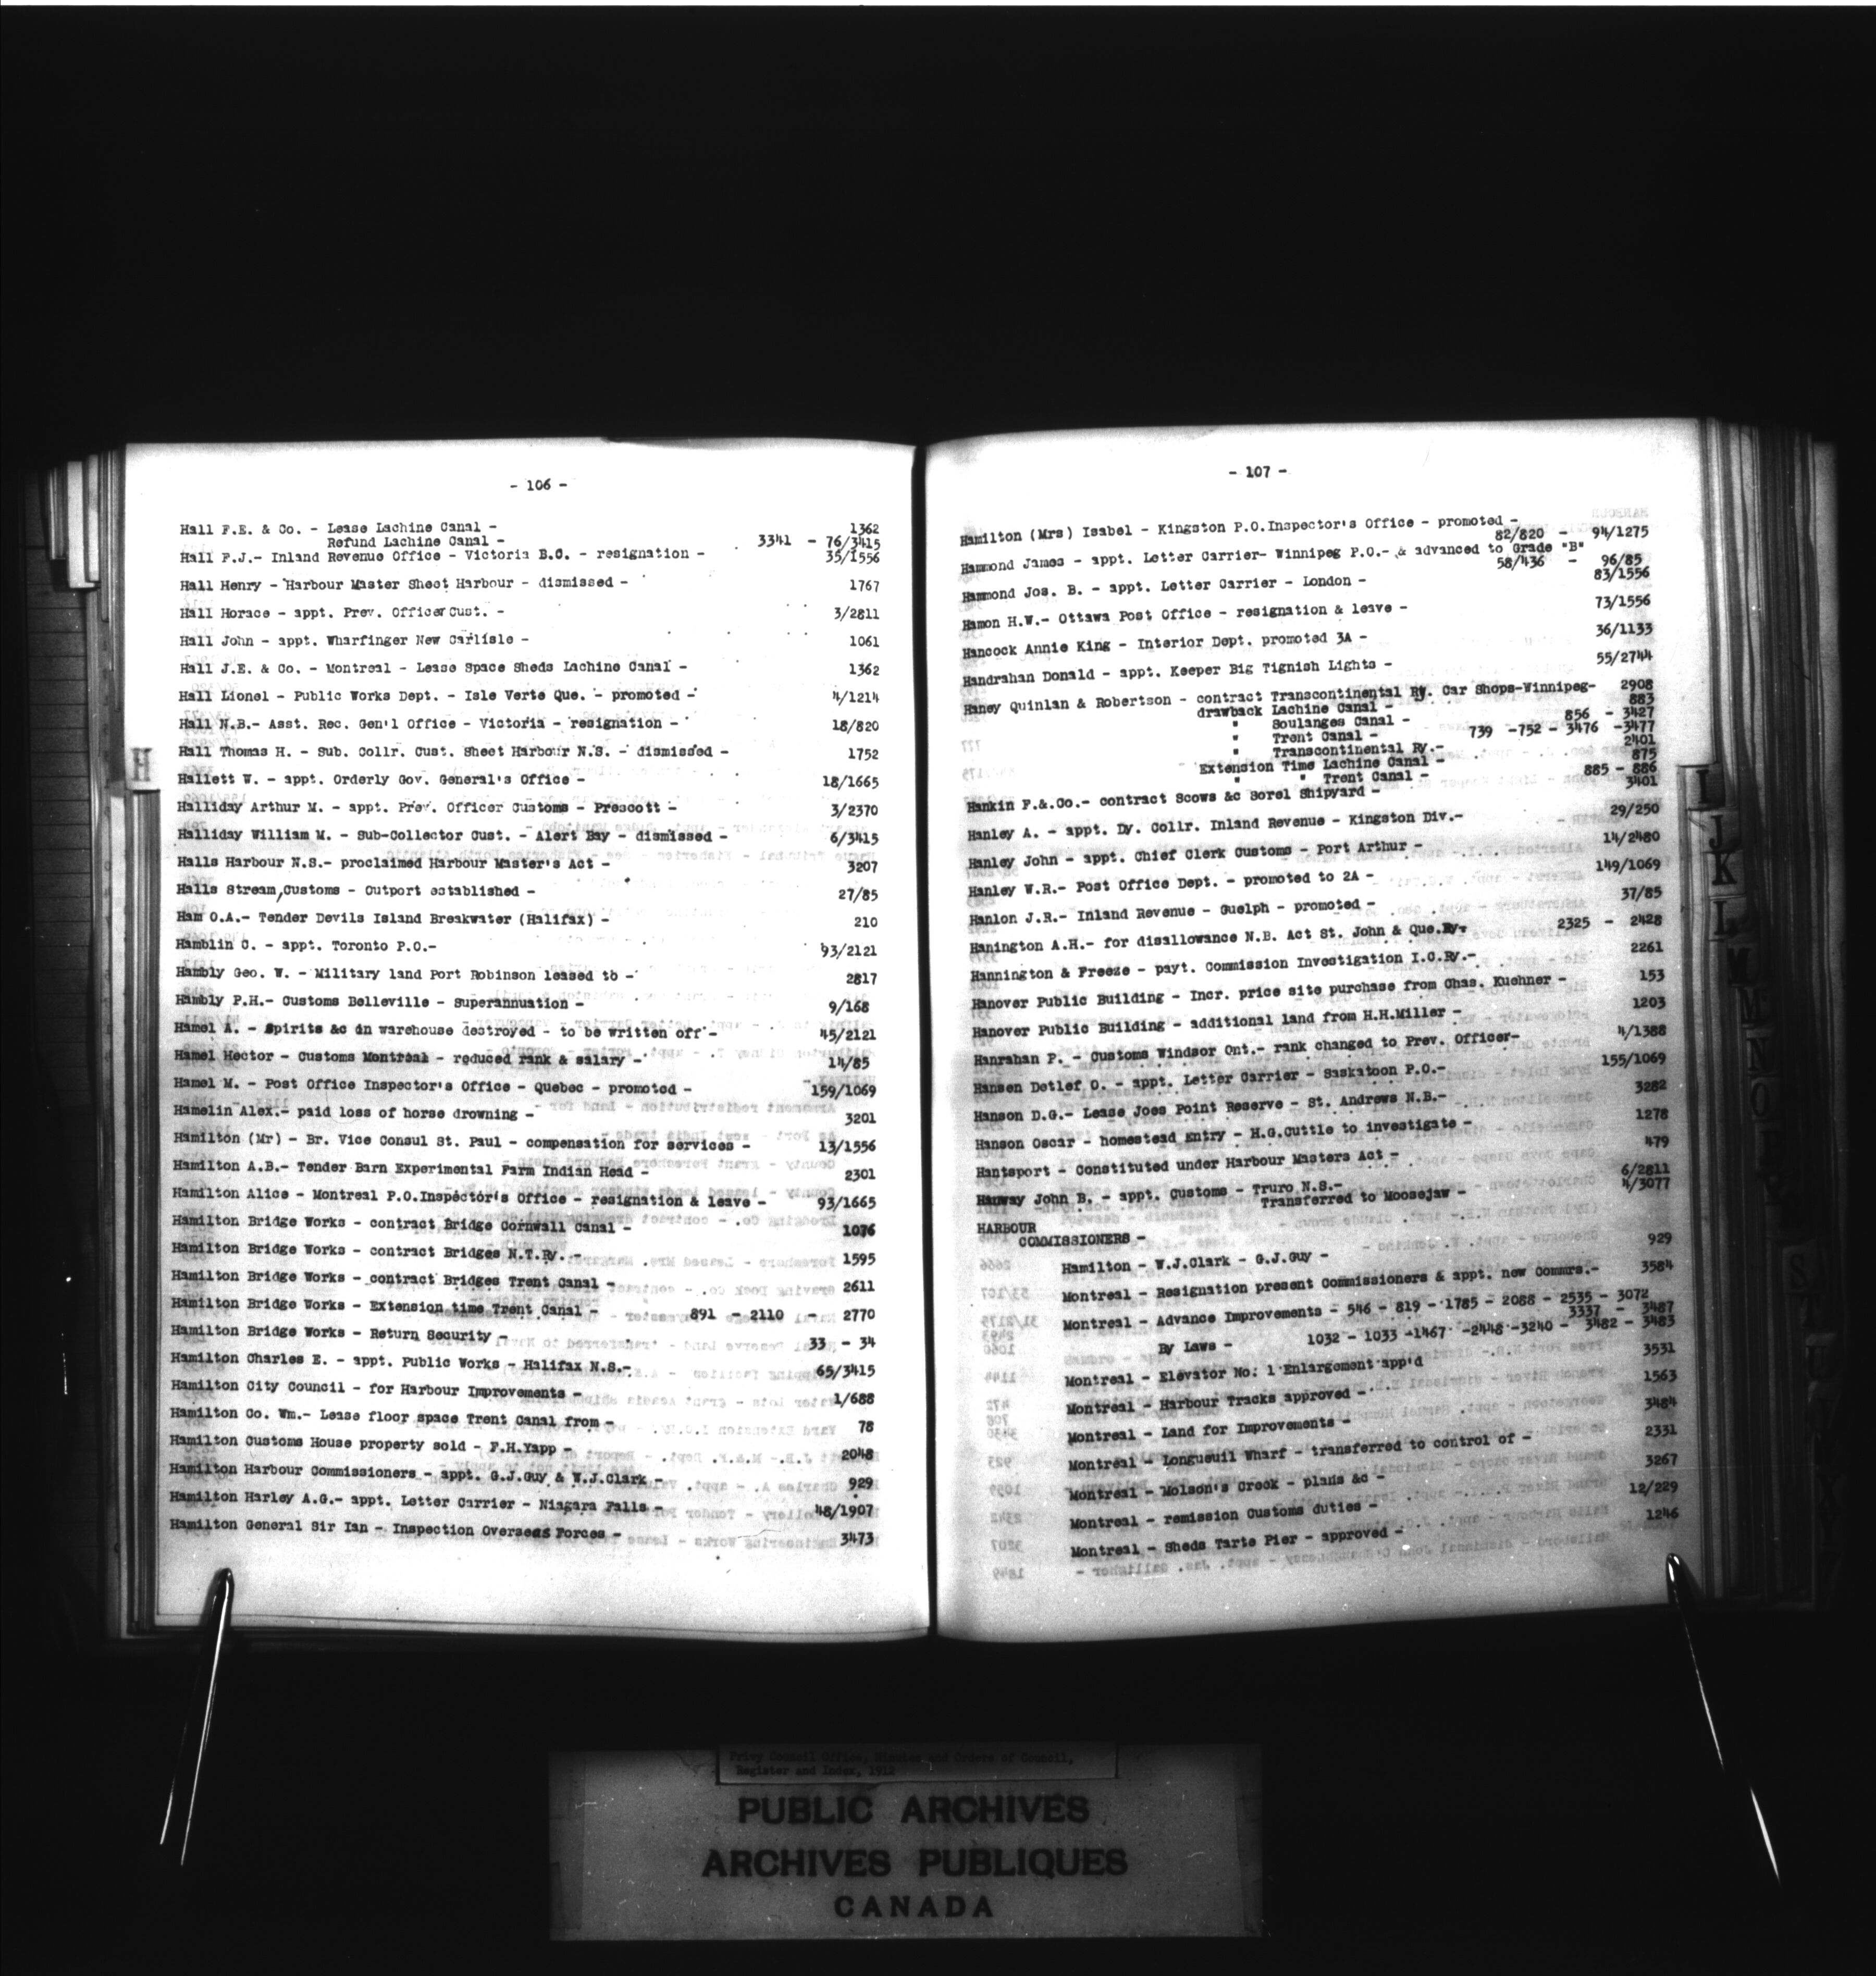 - 106 -
Hall F.E. & Co. - Lease Lachine Canal - 1362
Refund Lachine Canal - 3341 - 76/3415
Hall F.J.- Inland Revenue Office - Victoria B.C. - resignation - 35/1556
Hall Henry - Harbour Master Sheet Harbour - dismissed - 1767
Hall Horace - appt. Prev. Officer Cust. - 3/2811
Hall John - appt. Wharfinger New Carlisle - 1061
Hall J.E. & Co. - Montreal - Lease Space Sheds Lachine Canal - 1362
Hall Lionel - Public Works Dept. - Isle Verte Que. - promoted - 4/1214
Hall N.B.- Asst. Rec. Gen'l Office - Victoria - resignation - 18/820
Hall Thomas H. - Sub. Collr. Cust. Sheet Harbour N.S. - dismissed - 1752
Hallett W. - appt. Orderly Gov. General's Office - 18/1665
Halliday Arthur M. - appt. Prev. Officer Customs - Prescott - 3/2370
Halliday William M. - Sub-Collector Cust. - Alert Bay - dismissed - 6/3415
Halls Harbour N.S.- proclaimed Harbour Master's Act - 3207
Halls Stream,Customs - Outport established - 27/85
Ham O.A.- Tender Devils Island Breakwater (Halifax) - 210
Hamblin C. - appt. Toronto P.O.- 93/2121
Hambly Geo. W. - Military land Port Robinson leased to - 2817
Hambly P.H.- Customs Belleville - Superannuation - 9/168
Hamel A. - Spirits &c in warehouse destroyed - to be written off - 45/2121
Hamel Hector - Customs Montreal - reduced rank & salary - 14/85
Hamel M. - Post Office Inspector's Office - Quebec - promoted - 159/1069
Hamelin Alex.- paid loss of horse drowning - 3201
Hamilton (Mr) - Br. Vice Consul St. Paul - compensation for services - 13/1556
Hamilton A.B.- Tender Barn Experimental Farm Indian Head - 2301
Hamilton Alice - Montreal P.O.Inspector's Office - resignation & leave - 93/1665
Hamilton Bridge Works - contract Bridge Cornwall Canal - 1076
Hamilton Bridge Works - contract Bridges N.T.Ry. - 1595
Hamilton Bridge Works - contract Bridges Trent Canal - 2611
Hamilton Bridge Works - Extension time Trent Canal - 891 - 2110 - 2770
Hamilton Bridge Works - Return Security - 33 - 34
Hamilton Charles E. - appt. Public Works - Halifax N.S.- 65/3415
Hamilton City Council - for Harbour Improvements - 1/688
Hamilton Co. Wm.- Lease floor space Trent Canal from - 78
Hamilton Customs House property sold - F.H.Yapp - 2048
Hamilton Harbour Commissioners - appt. G.J.Guy & W.J.Clark - 929
Hamilton Harley A.G.- appt. Letter Carrier - Niagara Falls - 48/1907
Hamilton General Sir Ian - Inspection Overseas Forces - 3473
- 107 -
Hamilton (Mrs) Isabel - Kingston P.O.Inspector's Office - promoted -
82/820 - 94/1275
Hammond James - appt. Letter Carrier- Winnipeg P.O.- & advanced to Grade "B"
58/436 - 96/85
Hammond Jos. B. - appt. Letter Carrier - London - 83/1556
Hamon H.W.- Ottawa Post Office - resignation & leave - 73/1556
Hancock Annie King - Interior Dept. promoted 3A - 36/1133
Handrahan Donald - appt. Keeper Big Tignish Lights - 55/2744
Haney Quinlan & Robertson - contract Transcontinental Ry. Car Shops-Winnipeg- 2908
drawback Lachine Canal - 883
" Soulanges Canal - 856 - 3427
" Trent Canal - 739 -752 - 3476 -3477
" Transcontinental Ry.- 2401
Extension Time Lachine Canal - 875
" " Trent Canal - 885 - 886
Hankin F.&.Co.- contract Scows &c Sorel Shipyard - 3401
Hanley A. - appt. Dy. Collr. Inland Revenue - Kingston Div.- 29/250
Hanley John - appt. Chief Clerk Customs - Port Arthur - 14/2480
Hanley W.R.- Post Office Dept. - promoted to 2A - 149/1069
Hanlon J.R.- Inland Revenue - Guelph - promoted - 37/85
Hanington A.H.- for disallowance N.B. Act St. John & Que.Ry. 2325 - 2428
Hannington & Freeze - payt. Commission Investigation I.C.Ry.- 2261
Hanover Public Building - Incr. price site purchase from Chas. Kuehner - 153
Hanover Public Building - additional land from H.H.Miller - 1203
Hanrahan P. - Customs Windsor Ont.- rank changed to Prev. Officer- 4/1388
Hansen Detlef O. - appt. Letter Carrier - Saskatoon P.O.- 155/1069
Hanson D.G.- Lease Joes Point Reserve - St. Andrews N.B.- 3282
Hanson Oscar - homestead Entry - H.G.Cuttle to investigate - 1278
Hantsport - Constituted under Harbour Masters Act - 479
Hanway John B. - appt. Customs - Truro N.S.- 6/2811
Transferred to Moosejaw - 4/3077
HARBOUR
COMMISSIONERS -
Hamilton - W.J.Clark - G.J.Guy - 929
Montreal - Resignation present Commissioners & appt. new Commrs.- 3584
Montreal - Advance Improvements - 546 - 819 - 1785 - 2088 - 2535 - 3072
3337 - 3487
By Laws - 1032 - 1033 -1467 -2448 -3240 - 3482 - 3483
Montreal - Elevator No. 1 Enlargement app'd 3531
Montreal - Harbour Tracks approved - 1563
Montreal - Land for Improvements - 3484
Montreal - Longueuil Wharf - transferred to control of - 2331
Montreal - Molson's Creek - plans &c - 3267
Montreal - remission Customs duties - 12/229
Montreal - Sheds Tarte Pier - approved - 1246
H
I
J
K
L
M
N
O
S
Privy Council Office, Minutes and Orders of Council,
Register and Index, 1912
PUBLIC ARCHIVES
ARCHIVES PUBLIQUES
CANADA